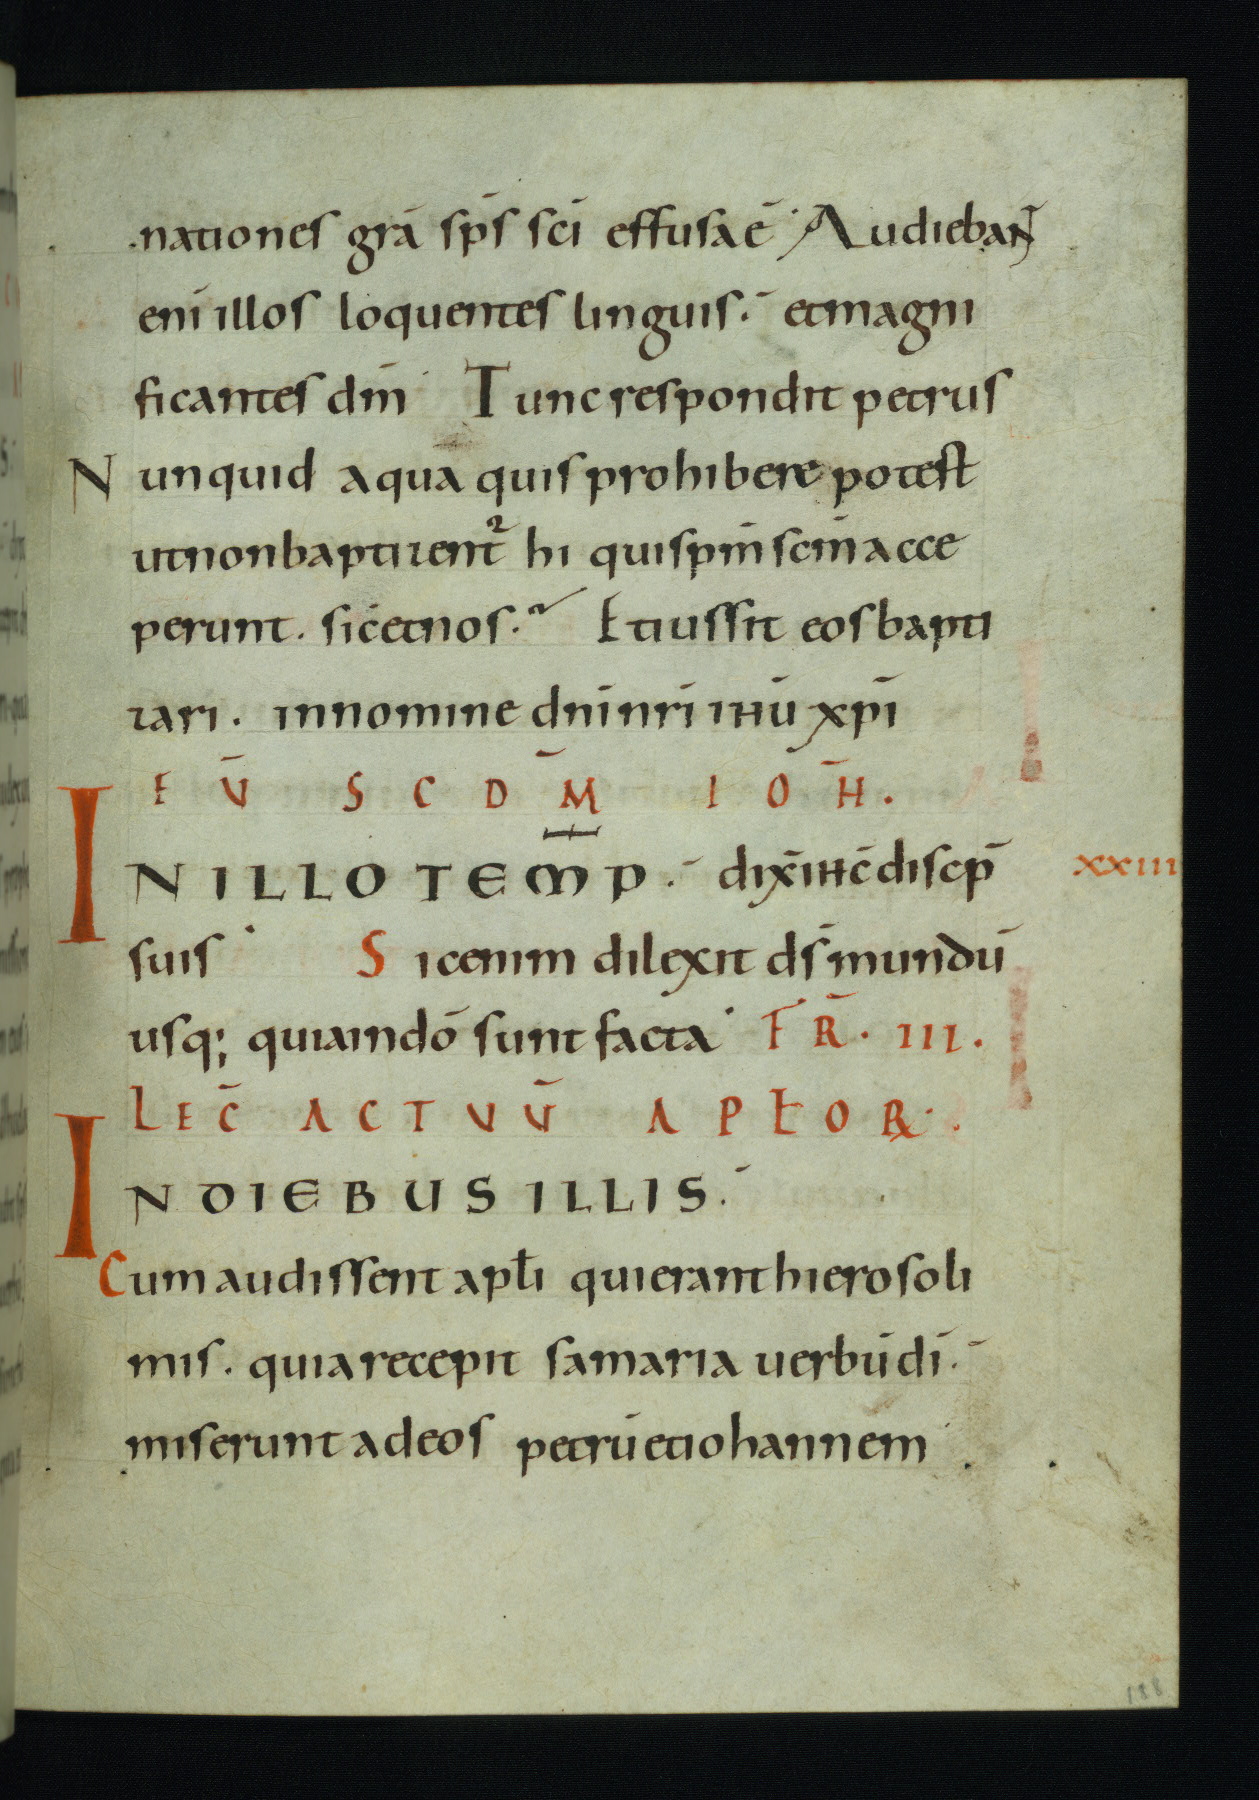 nationes grā sp̄s sc̄i effusa ē Audieban̄
eni̅ illos loquentes linguis. et magni
ficantes dm̄ Tunc respondit petrus
Nunquid aqua quis prohibere potest
ut non baptizent᷑ hi qui spm̄ scm̄ acce
perunt. sic̄ et nos. Et iussit eos bapti
zari. in nomine dn̄i nr̄i ihū xp̄i
EŪ SCDM̄ IOH̄.
IN ILLO TEMP. dix̄ ihc̄ discip̄ xxiii
suis Sic enim dilexit ds̄ mundū
usq; quia in dō sunt facta FR̄. III.
LEC̄ ACTUŪ APŁORꝜ.
IN DIEBUS ILLIS.
Cum audissent apłi qui erant hierosoli
mis. quia recepit samaria uerbū dī.
miserunt ad eos petrū et iohannem
188